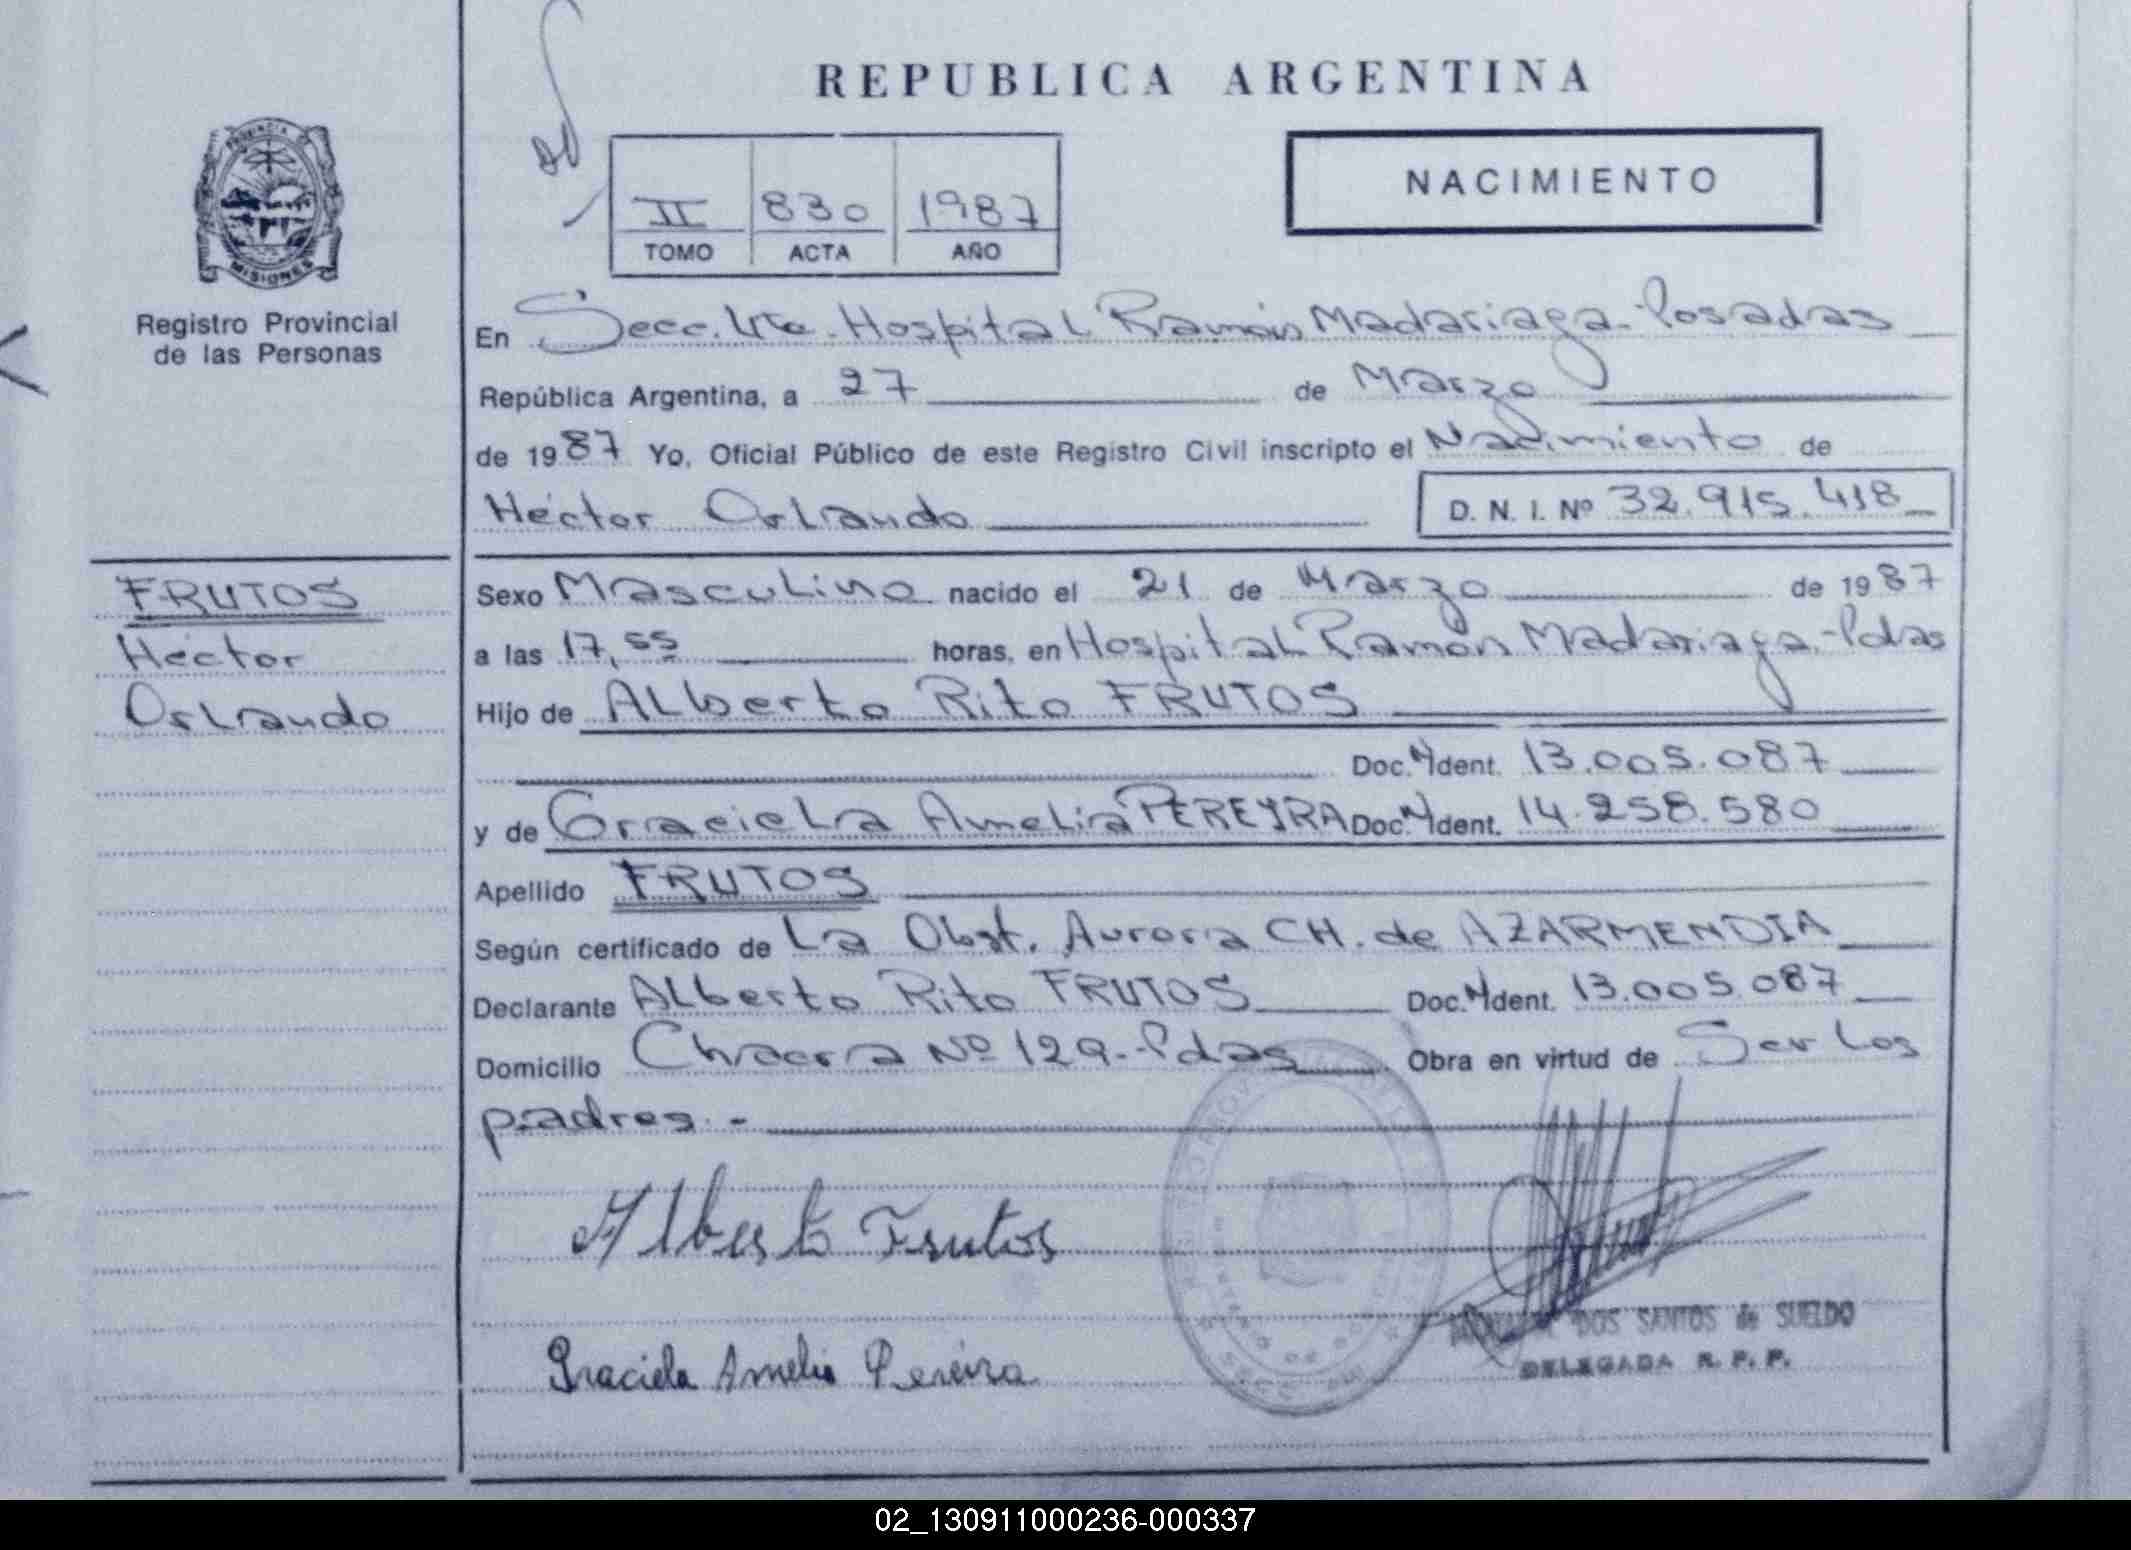 REPUBLICA ARGENTINA
PROVINCIA DE
MISIONES
Registro Provincial
de las Personas
II 830 1987
TOMO ACTA AÑO
NACIMIENTO
En Secc. 4ta. Hospital Ramón Madariaga - Posadas
República Argentina, a 27 de Marzo
de 1987 Yo, Oficial Público de este Registro Civil inscripto el Nacimiento de
Héctor Orlando D. N. I. Nº 32.915.418
FRUTOS
Héctor
Orlando
Sexo Masculino nacido el 21 de Marzo de 1987
a las 17,55 horas, en Hospital Ramón Madariaga - Pdas
Hijo de Alberto Rito FRUTOS
Doc. Ident. 13.005.087
y de Graciela Amelia PEREYRA Doc. Ident. 14.258.580
Apellido FRUTOS
Según certificado de La Obst. Aurora CH. de AZARMENDIA
Declarante Alberto Rito FRUTOS Doc. Ident. 13.005.087
Domicilio Chacra Nº 129 - Pdas Obra en virtud de Ser los
padres. -
Alberto Frutos
DOS SANTOS de SUELDO
DELEGADA R. P. P.
Graciela Amelia Pereira
02_130911000236-000337